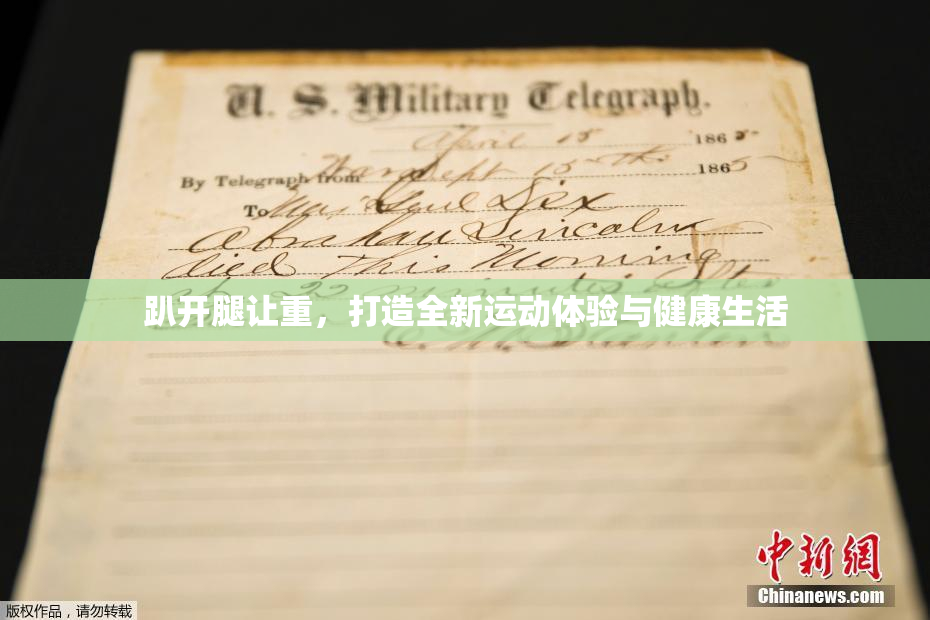 U. S. Military Telegraph.
April 15 1865
By Telegraph from War Dept 15th 1865
To Maj Genl Dix
Abraham Lincoln
died This Morning
22 minutes after
趴开腿让重，打造全新运动体验与健康生活
E. M. Stanton
中新網
Chinanews.com
版权作品，请勿转载